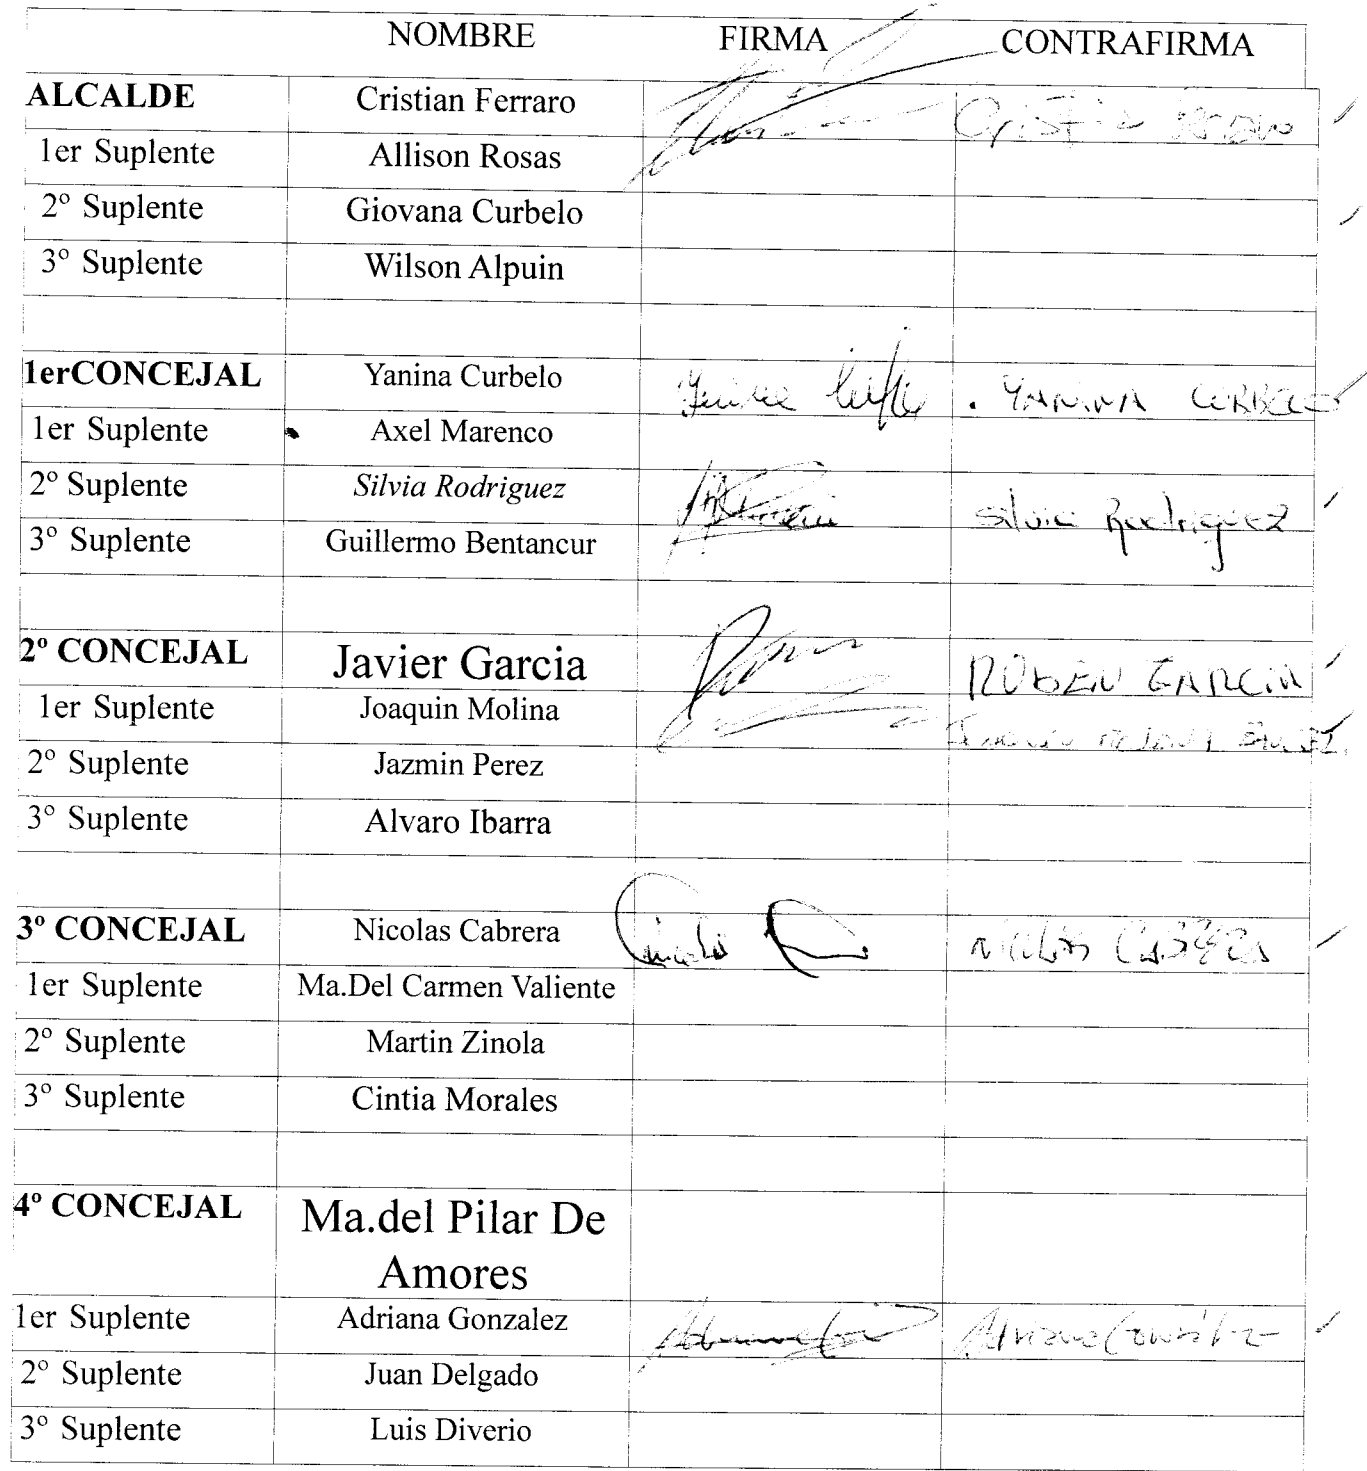 NOMBRE FIRMA CONTRAFIRMA
ALCALDE Cristian Ferraro
1er Suplente Allison Rosas
2º Suplente Giovana Curbelo
3º Suplente Wilson Alpuin
1erCONCEJAL Yanina Curbelo YANINA CURBELO
1er Suplente Axel Marenco
2º Suplente Silvia Rodriguez Silvia Rodriguez
3º Suplente Guillermo Bentancur
2º CONCEJAL Javier Garcia RUBEN GARCIA
1er Suplente Joaquin Molina
2º Suplente Jazmin Perez
3º Suplente Alvaro Ibarra
3º CONCEJAL Nicolas Cabrera NICOLAS CABRERA
1er Suplente Ma.Del Carmen Valiente
2º Suplente Martin Zinola
3º Suplente Cintia Morales
4º CONCEJAL Ma.del Pilar De
Amores
1er Suplente Adriana Gonzalez Adriana González
2º Suplente Juan Delgado
3º Suplente Luis Diverio